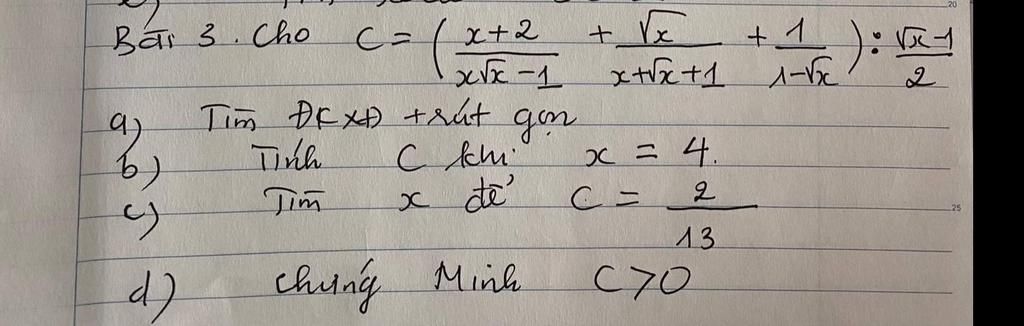 Bài 3. Cho C = ( (x+2)/(x√x − 1) + √x/(x+√x+1) + 1/(1−√x) ) : (√x−1)/2
a) Tìm ĐKXĐ + rút gọn
b) Tính C khi x = 4.
c) Tìm x để C = 2/13
d) Chứng Minh C > 0
20
25